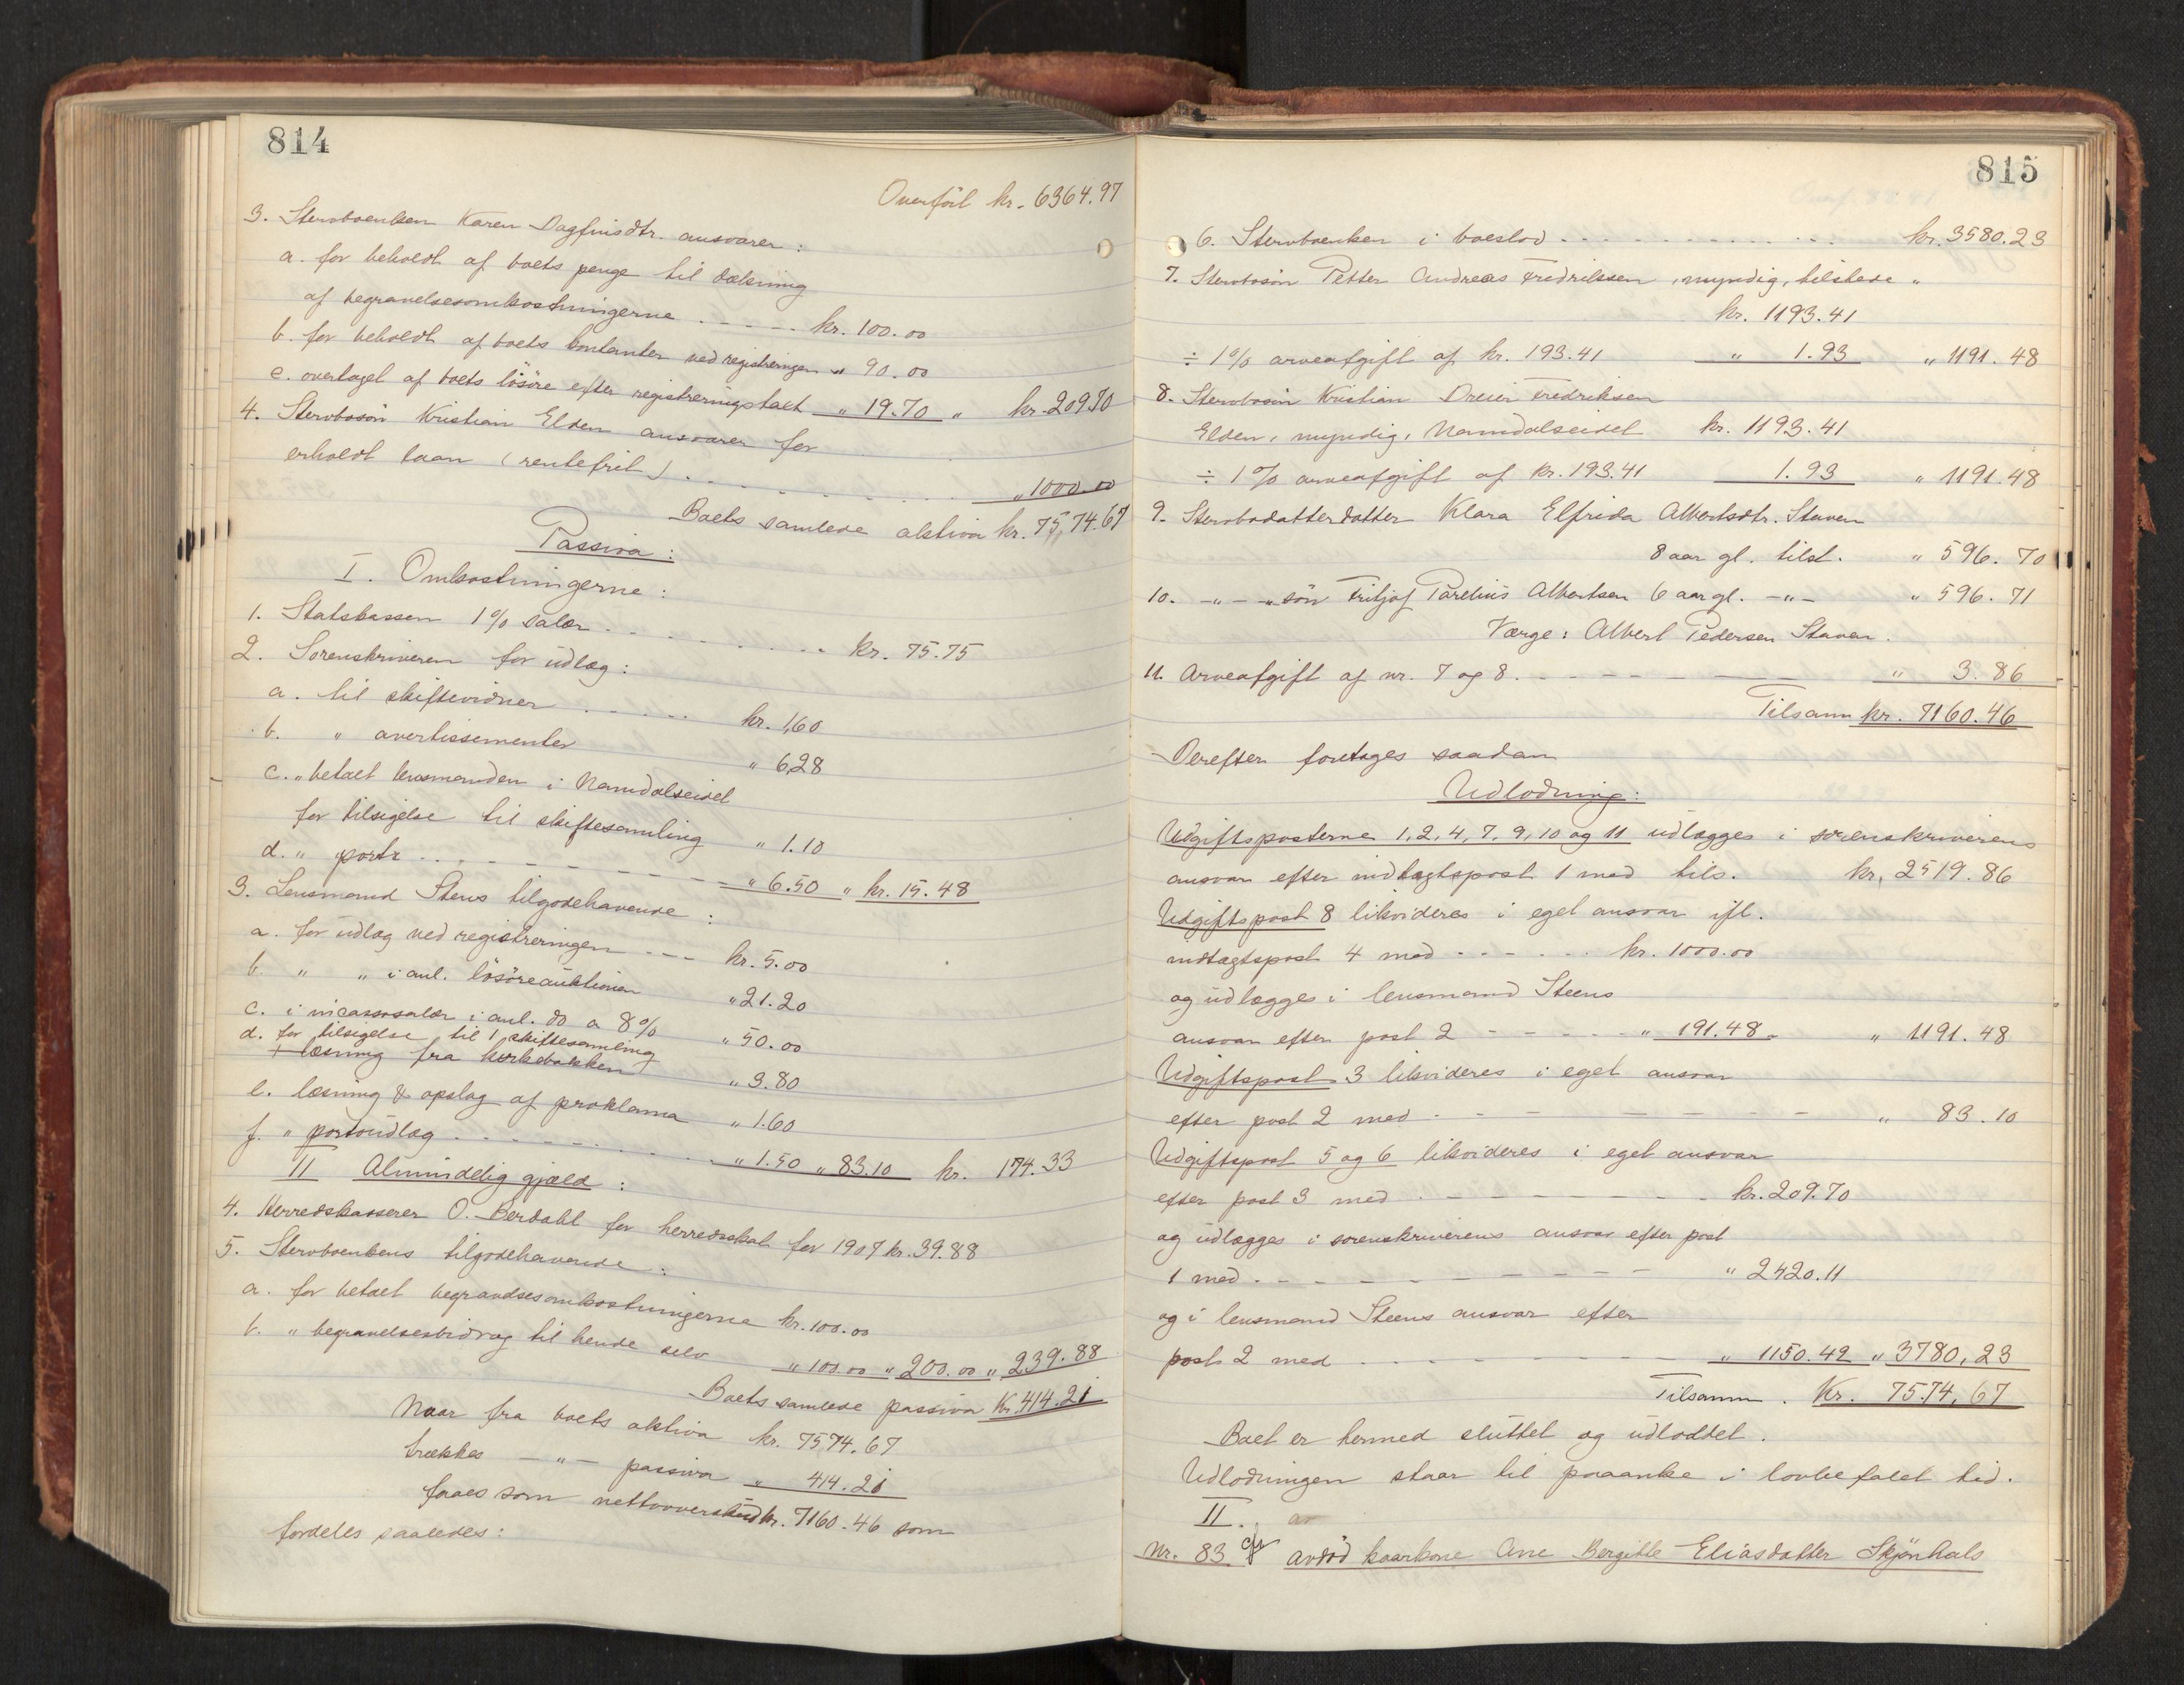 814
Overfört kr. 6364.97
3. Stervboenken Karen Dagfinsdtr. ansvarer:
a. for beholdt af boets penge til dækning
af begravelsesomkostningerne . - - - - - kr. 100.00
b. for beholdt af boets kontanter ved registreringen " 90.00
c. overtaget af boets lösöre efter registreringstakt " 19.70 " kr. 209.70
4. Stervbosön Kristian Elden ansvarer for
erholdt laan (rentefrit) . - - - - - - - " 1000.00
Boets samlede aktiva kr. 7574.67
Passiva:
I. Omkostningerne:
1. Statskassen 1% salær . - - - - - - - kr. 75.75
2. Sorenskriveren for udlæg:
a. til skiftevidner . - - - - - kr. 1,60
b. " avertissementer " 6,28
c. " betalt lensmanden i Namdalseidet
for tilsigelse til skiftesamling " 1.10
d. " porto . . - - - - - - - " 6.50 " kr. 15.48
3. Lensmand Stens tilgodehavende:
a. for udlæg ved registreringen - - - kr. 5.00
b. " " i anl. lösöreauktionen " 21.20
c. i incassosalær i anl. do a 8% " 50.00
d. for tilsigelse til 1 skiftesamling
+ læsning fra kirkebakken " 3.80
e. læsning & opslag af proklama " 1.60
f. " portoudlæg . - - - - - - " 1.50 " 83.10 kr. 174.33
II Almindelig gjæld:
4. Herredskasserer O. Berdahl for herredsskat for 1907 kr. 39.88
5. Stervboenkens tilgodehavende:
a. for betalt begravelsesomkostningerne kr. 100.00
b. " begravelsesbidrag til hende selv " 100.00 " 200.00 " 239.88
Boets samlede passiva Kr. 414.21
Naar fra boets aktiva kr. 7574.67
trækkes - " - passiva " 414.21
faaes som nettooverskud kr. 7160.46 som
fordeles saaledes:
815
6. Stervboenken i boeslod - - - - - - - - - kr. 3580.23
7. Stervbosön Petter Andreas Fredriksen, myndig, tilstede "
kr. 1193.41
÷ 1% arveafgift af kr. 193.41 " 1.93 " 1191.48
8. Stervbosön Kristian Dreier Fredriksen
Elden, myndig, Namdalseidet kr. 1193.41
÷ 1% arveafgift af kr. 193.41 1.93 " 1191.48
9. Stervbodatterdatter Klara Elfrida Albertsdtr. Staven
8 aar gl. tilst. " 596.70
10. - " - " sön Fritjof Parelius Albertsen 6 aar gl. - " - " 596.71
Værge: Albert Pedersen Staven.
11. Arveafgift af nr. 7 og 8 . - - - - - - " 3.86
Tilsam kr. 7160.46
Derefter foretages saadan
Udlodning:
Udgiftsposterne 1, 2, 4, 7, 9, 10 og 11 udlægges i sorenskriverens
ansvar efter indtægtspost 1 med tils. kr. 2519.86
Udgiftspost 8 likvideres i eget ansvar ifl.
indtægtspost 4 med - - - - - - kr. 1000.00
og udlægges i lensmand Steens
ansvar efter post 2 - - - - - " 191.48 " 1191.48
Udgiftspost 3 likvideres i eget ansvar
efter post 2 med - - - - - - - - " 83.10
Udgiftspost 5 og 6 likvideres i eget ansvar
efter post 3 med . - - - - - - - kr. 209.70
og udlægges i sorenskriverens ansvar efter post
1 med . - - - - - - - - " 2420.11
og i lensmand Steens ansvar efter
post 2 med . - - - - - - - " 1150.42 " 3780,23
Tilsamm. Kr. 7574,67
Boet er hermed sluttet og udloddet.
Udlodningen staar til paaanke i lovbefalet tid.
II.
Nr. 83 avdöd kaarkone Ane Bergitte Eliasdatter Skjönhals